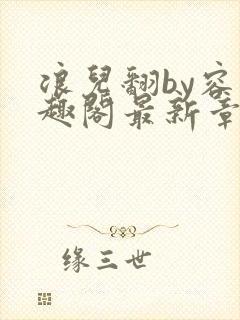 浪兒翻by容
趣閣最新章
缘三世